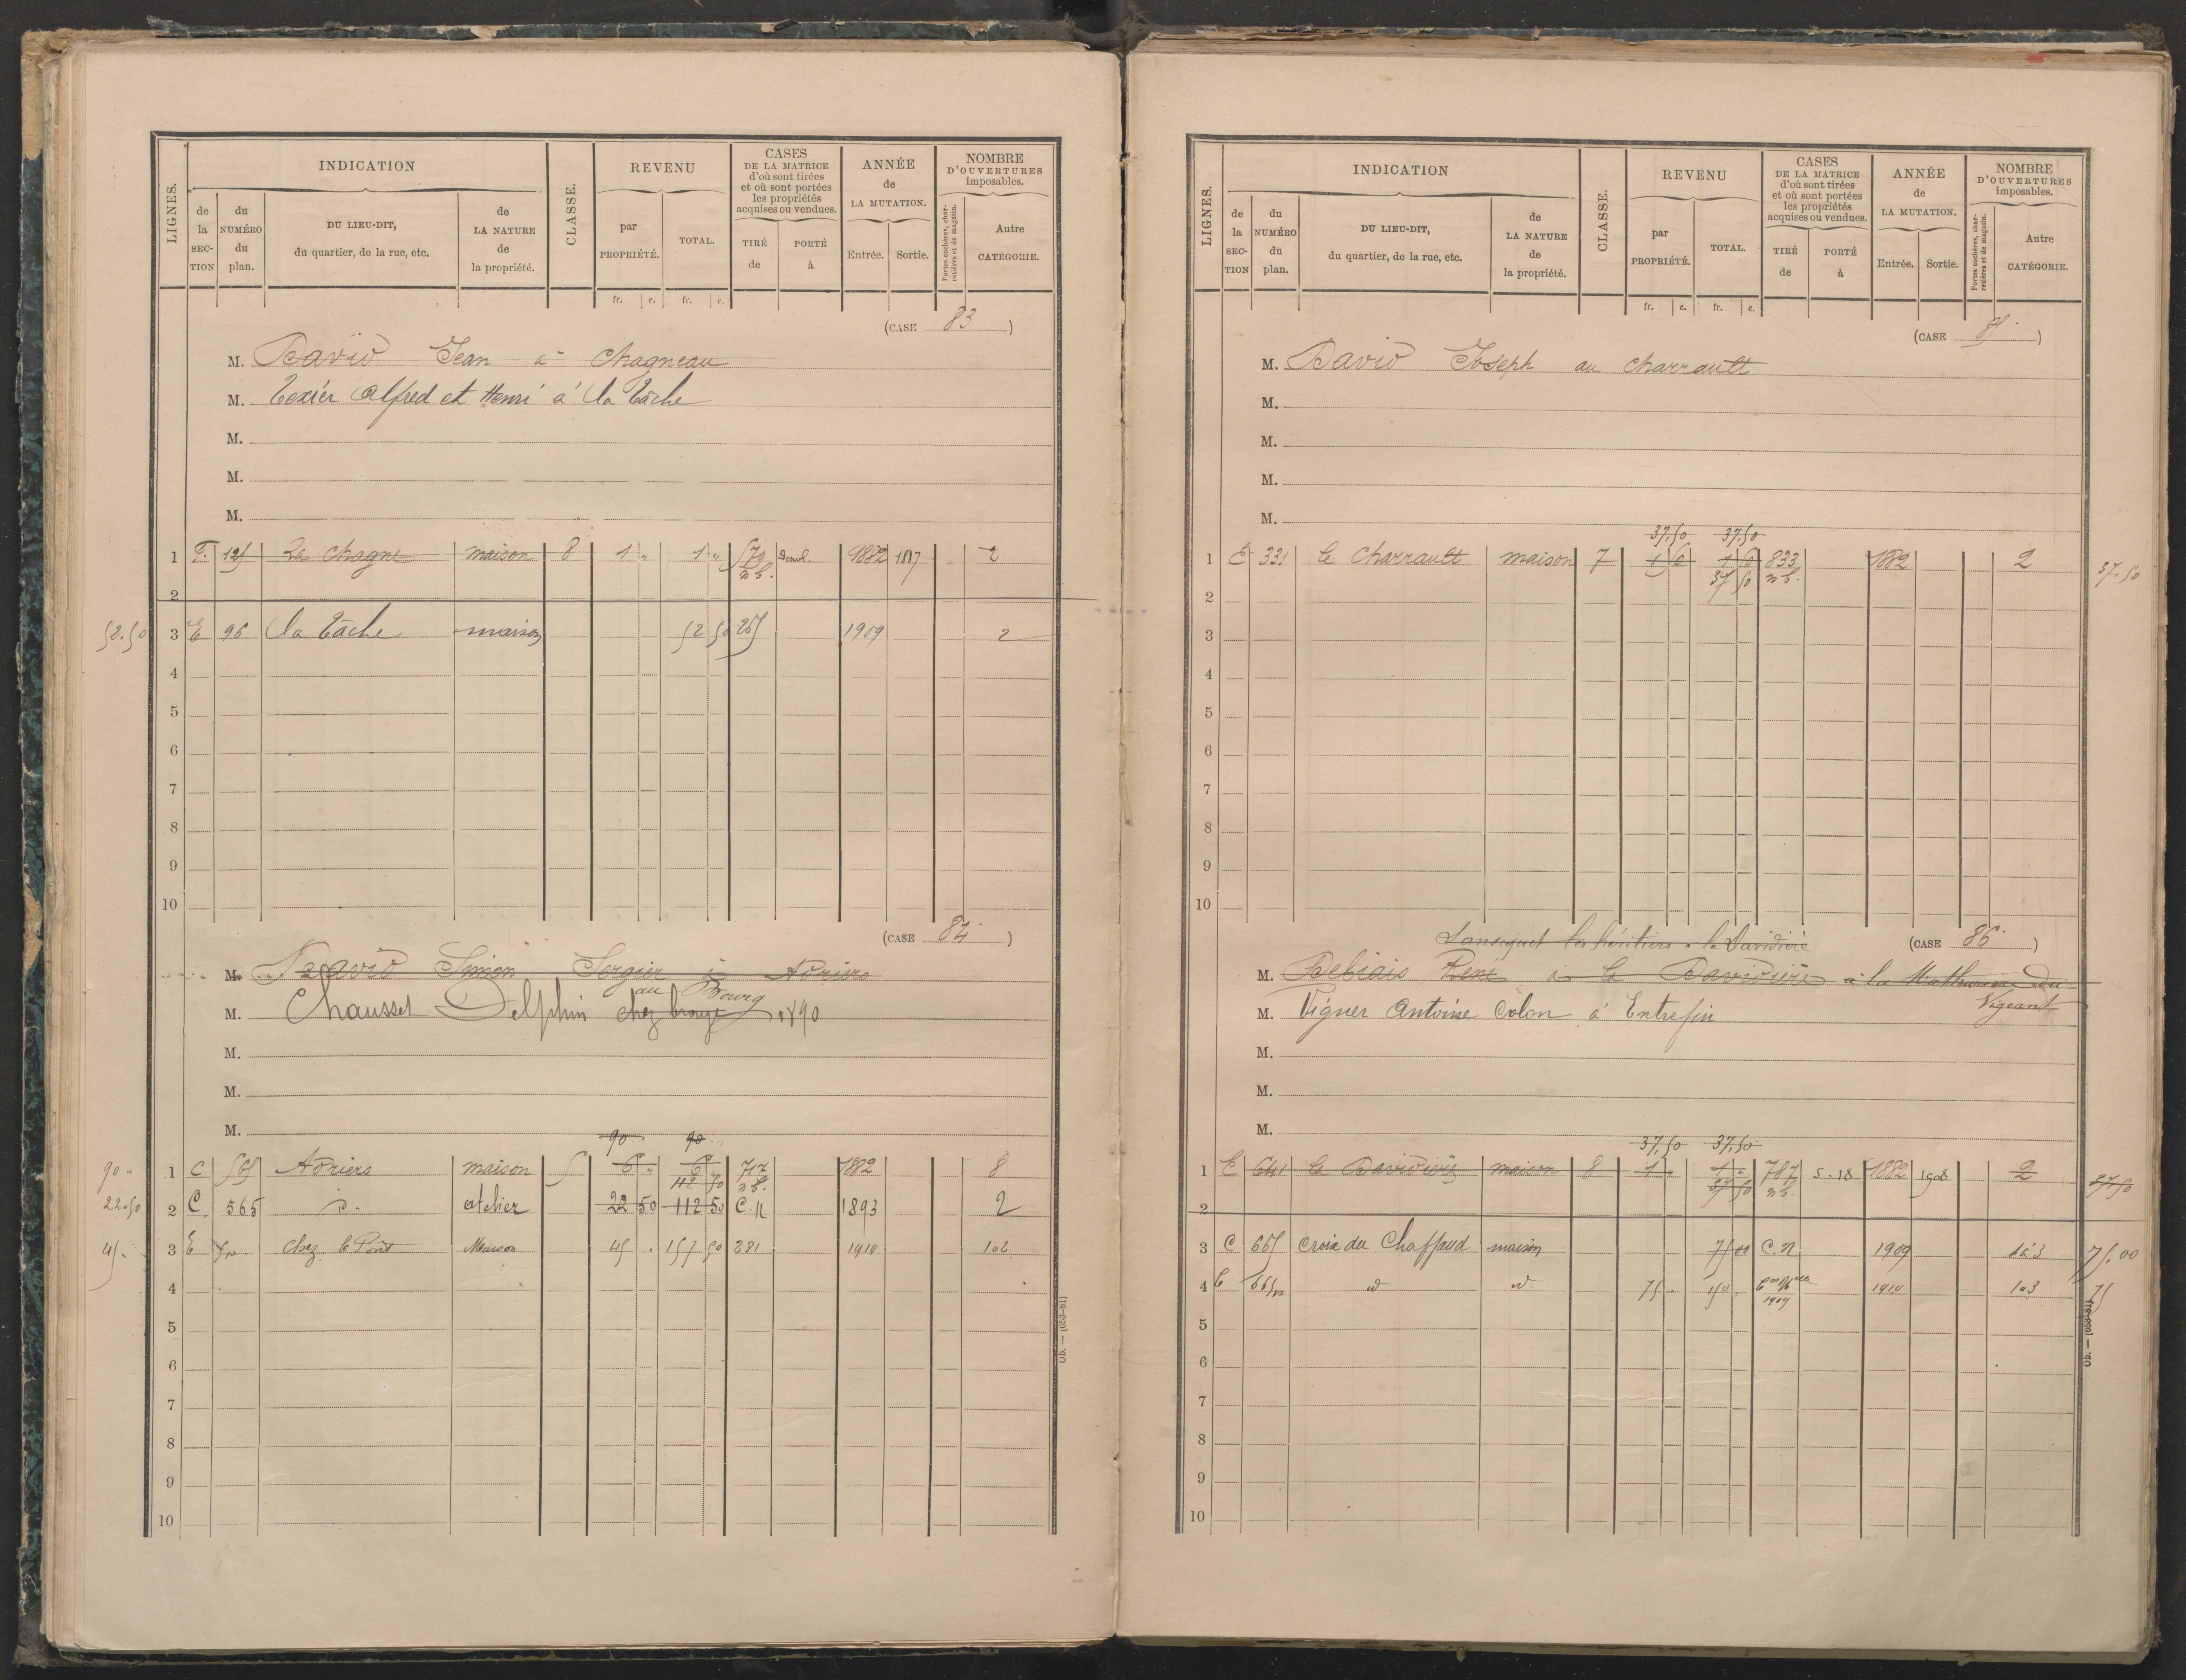 LIGNES.
INDICATION
de la SECTION
du NUMÉRO du plan.
DU LIEU-DIT, du quartier, de la rue, etc.
de LA NATURE de la propriété.
CLASSE.
REVENU
par PROPRIÉTÉ.
TOTAL.
fr. c. fr. c.
CASES
DE LA MATRICE
d'où sont tirées
et où sont portées
les propriétés
acquises ou vendues.
TIRÉ de
PORTÉ à
ANNÉE
de
LA MUTATION.
Entrée. Sortie.
NOMBRE
D'OUVERTURES
imposables.
Portes cochères, charretières et de magasin.
Autre CATÉGORIE.
(CASE 83)
M. David Jean à Chagneau
M. Texier Alfred et Henri à la Tâche
M.
M.
M.
1 F. 125 La Chagne maison 8 1 " 1 " 570 Démol. 1882 1887 2
n b.
2
52.50 3 E 96 la Tâche maison 52 50 265 1909 2
4
5
6
7
8
9
10
(CASE 84)
M. David Simon Sergier à Adriers
au Bourg
M. Chausset Delphin 1890
M.
M.
M.
90 90
90 " 1 C 565 Adriers maison 5 6 " 6 " 717 1882 8
112 50 n b.
22.50 2 C 565 d° atelier 22 50 112 50 C. N 1893 2
45 - 3 E Chez le Pont Maison 45 . 157 50 281 1910 1 à 2
4
5
6
7
8
9
10
Ob. — (653-81)
LIGNES.
INDICATION
de la SECTION
du NUMÉRO du plan.
DU LIEU-DIT, du quartier, de la rue, etc.
de LA NATURE de la propriété.
CLASSE.
REVENU
par PROPRIÉTÉ.
TOTAL.
fr. c. fr. c.
CASES
DE LA MATRICE
d'où sont tirées
et où sont portées
les propriétés
acquises ou vendues.
TIRÉ de
PORTÉ à
ANNÉE
de
LA MUTATION.
Entrée. Sortie.
NOMBRE
D'OUVERTURES
imposables.
Portes cochères, charretières et de magasin.
Autre CATÉGORIE.
(CASE 85)
M. David Joseph au Charrault
M.
M.
M.
M.
37,50 37,50
1 E 331 Le Charrault maison 7 1 50 1 50 833 1882 2 37.50
37 50 n b.
2
3
4
5
6
7
8
9
10
les héritiers à la Davidière (CASE 86)
M. Debiais René à la Davidière à la Mathurine du
Vigeant
M. Vigner Antoine Colon à Entrefin
M.
M.
M.
37,50 37,50
1 E 641 La Davidière maison 8 1 " 1 " 787 5-18 1882 1908 2 37,50
37 50 n b.
2
3 C 665 Croix du Chaffaud maison 75 00 C. N 1909 1 à 3 75.00
4 C 665 d° d° 75 - 150 - 1909 1910 1 à 3 75
5
6
7
8
9
10